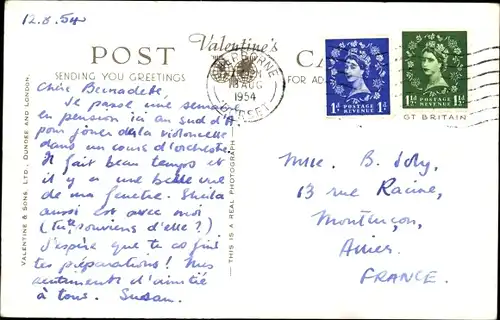 12.8.54
POST
Valentine's
CA
SENDING YOU GREETINGS
FOR AD
SHERBORNE
18 AUG
1954
DORSET
1D POSTAGE REVENUE 1D
1½D POSTAGE REVENUE 1½D
GT BRITAIN
VALENTINE & SONS, LTD., DUNDEE AND LONDON.
THIS IS A REAL PHOTOGRAPH
Chère Bernadette,
Je passe une semaine
en pension ici au sud d'A
pour jouer de la violoncelle
dans un cours d'orchestre.
Il fait beau temps et
il y a une belle vue
de ma fenetre. Sheila
aussi est avec moi
(tu te souviens d'elle?)
J'espère que tu as fini
tes préparations! Mes
sentiments d'amitié
à tous. Susan.
Mlle. B. Joly,
13 rue Racine,
Montluçon,
Allier,
FRANCE.